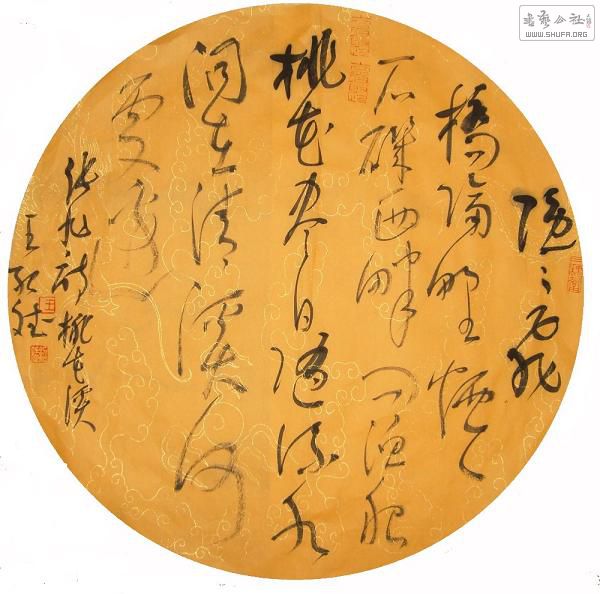 隐〻飛
橋隔野烟
石磯西畔问渔船
桃花尽日随流水
洞在清溪何
處边
张旭诗桃花溪
王
書藝公社
WWW.SHUFA.ORG